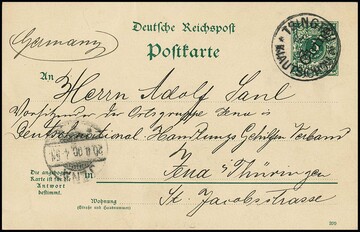 Deutsche Reichspost
Postkarte
Germany
TSINGTAU
KIAUTSCHOU
An
Herrn Adolf Saul
Vorsitzender der Ortsgruppe Jena
Deutschnational Handlungs Gehilfen Verband
Jena i/Thüringen
St. Jacobstrasse
Die angebogene
Karte ist für die
Antwort
bestimmt.
Wohnung
(Straße und Hausnummer)